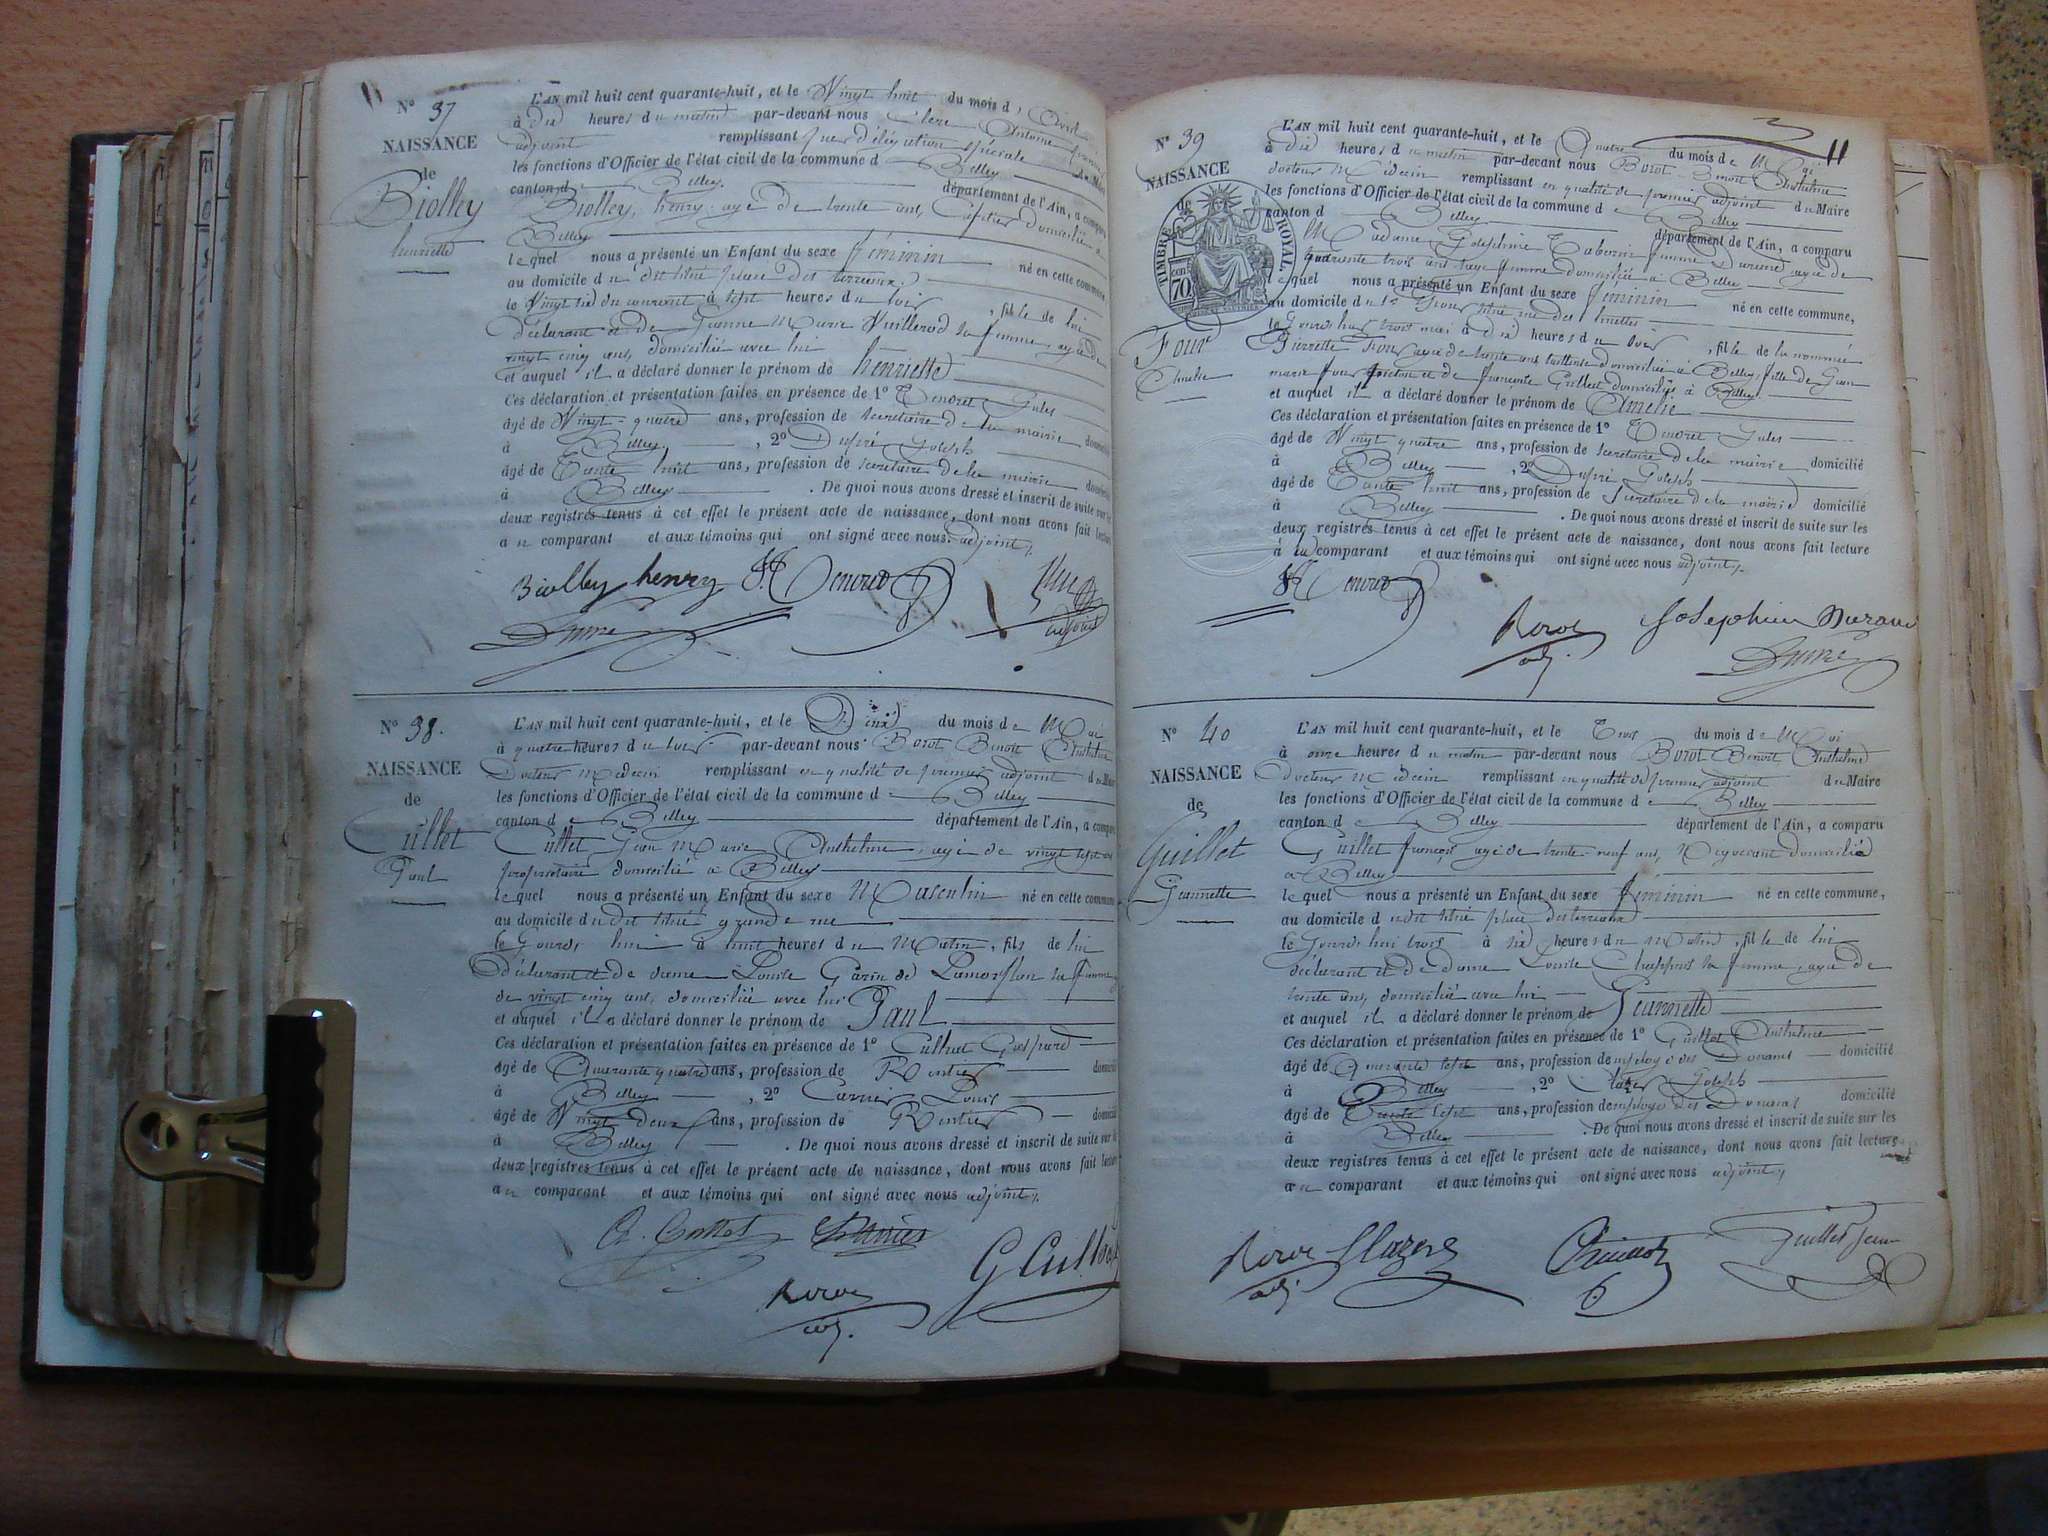 N° 37
NAISSANCE
de
Biolley
henriette
L'AN mil huit cent quarante-huit, et le Vingt huit du mois d'Avril
à dix heures du matin par-devant nous Clerc Antoine
adjoint remplissant par délégation spéciale
les fonctions d'Officier de l'état civil de la commune de Belley
canton de Belley département de l'Ain, a comparu
Biolley, henry agé de trente ans, domicilié à
Belley
lequel nous a présenté un Enfant du sexe féminin né en cette commune
au domicile du dit titré place des terreaux
le Vingt six du courant à sept heures du soir, fille de lui
déclarant et de Jeanne Marie Vuillerod sa femme, agée de
vingt cinq ans, domiciliée avec lui
et auquel il a déclaré donner le prénom de henriette
Ces déclaration et présentation faites en présence de 1° Tenoret Jules
âgé de Vingt-quatre ans, profession de secretaire de la mairie domicilié
à Belley, 2° Dupré Joseph
âgé de Trente huit ans, profession de secretaire de la mairie domicilié
à Belley. De quoi nous avons dressé et inscrit de suite sur les
deux registres tenus à cet effet le présent acte de naissance, dont nous avons fait lecture
au comparant et aux témoins qui ont signé avec nous adjoint
Biolley henry
adjoint
N° 38.
NAISSANCE
de
Cullet
Paul
L'AN mil huit cent quarante-huit, et le Deux du mois de Mai
à quatre heures du soir par-devant nous Borot Benoit Anthelme
Docteur Médecin remplissant en qualité de premier adjoint du Maire
les fonctions d'Officier de l'état civil de la commune de Belley
canton de Belley département de l'Ain, a comparu
Cullet Jean Marie Anthelme, agé de vingt sept ans
propriétaire domicilié à Belley
lequel nous a présenté un Enfant du sexe Masculin né en cette commune
au domicile du dit titré grande rue
le Jourd'hui à huit heures du Matin, fils de lui
déclarant et de dame Louise Garin de Lamorflan sa femme
de vingt cinq ans, domiciliée avec lui
et auquel il a déclaré donner le prénom de Paul
Ces déclaration et présentation faites en présence de 1° Culhat Gaspard
âgé de Quarante quatre ans, profession de Rentier domicilié
à Belley, 2° Carrier Louis
âgé de Vingt deux ans, profession de Rentier domicilié
à Belley. De quoi nous avons dressé et inscrit de suite sur les
deux registres tenus à cet effet le présent acte de naissance, dont nous avons fait lecture
au comparant et aux témoins qui ont signé avec nous adjoint
A. Cullet
G Culhat
Borot
adj.
11
N° 39
NAISSANCE
de
TIMBRE ROYAL
70
Four
Amelie
L'AN mil huit cent quarante-huit, et le Quatre du mois de Mai
à dix heures du matin par-devant nous Borot Benoit Anthelme
docteur Médecin remplissant en qualité de premier adjoint du Maire
les fonctions d'Officier de l'état civil de la commune de Belley
canton de Belley département de l'Ain, a comparu
Madame Josephine Tabourin femme Durand, agée de
quarante trois ans sage femme domiciliée à Belley
lequel nous a présenté un Enfant du sexe féminin né en cette commune,
au domicile du Sr Four titré rue des
le Jour d'hier trois mai à dix heures du soir, fille de la nommée
Pierrette Four agée de trente ans tailleuse domiciliée à Belley, fille de Jean
marie Four et de Guillet domiciliés à Belley
et auquel il a déclaré donner le prénom de Amelie
Ces déclaration et présentation faites en présence de 1° Tenoret Jules
âgé de Vingt quatre ans, profession de secretaire de la mairie domicilié
à Belley, 2° Dupré Joseph
âgé de Trente huit ans, profession de Secretaire de la mairie domicilié
à Belley. De quoi nous avons dressé et inscrit de suite sur les
deux registres tenus à cet effet le présent acte de naissance, dont nous avons fait lecture
à la comparant et aux témoins qui ont signé avec nous adjoint
Borot
adj.
Josephine Durand
N° 40
NAISSANCE
de
Guillet
Jeannette
L'AN mil huit cent quarante-huit, et le Trois du mois de Mai
à onze heures du matin par-devant nous Borot Benoit Anthelme
docteur Médecin remplissant en qualité de premier adjoint du Maire
les fonctions d'Officier de l'état civil de la commune de Belley
canton de Belley département de l'Ain, a comparu
Guillet françois agé de trente-neuf ans, Négociant domicilié
à Belley
lequel nous a présenté un Enfant du sexe féminin né en cette commune,
au domicile du dit titré place des terreaux
le Jourd'hui trois à six heures du Matin, fille de lui
déclarant et de dame Louise Chappuis sa femme, agée de
trente ans, domiciliée avec lui
et auquel il a déclaré donner le prénom de Jeannette
Ces déclaration et présentation faites en présence de 1° Guillot Anthelme
âgé de Quarante sept ans, profession de employé des Douanes domicilié
à Belley, 2° Joseph
âgé de Trente sept ans, profession de employé des Douanes domicilié
à Belley. De quoi nous avons dressé et inscrit de suite sur les
deux registres tenus à cet effet le présent acte de naissance, dont nous avons fait lecture
au comparant et aux témoins qui ont signé avec nous adjoint
Borot
adj.